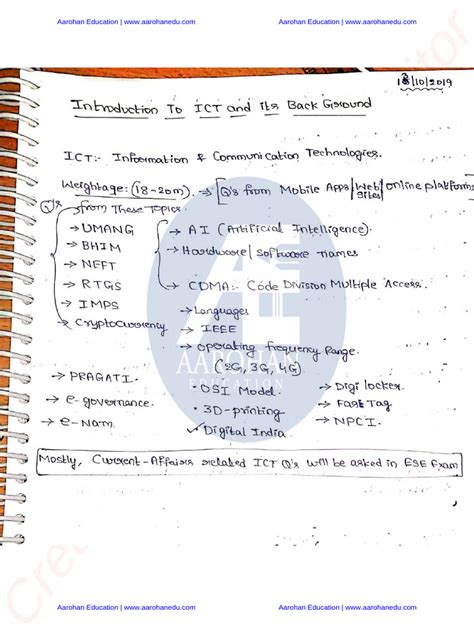 Aarohan Education | www.aarohanedu.com Aarohan Education | www.aarohanedu.com
18/10/2019
Introduction To ICT and its Back Ground
ICT:- Information & Communication Technologies.
Weightage: (18-20m) → [Q's from Mobile Apps/Web sites/online platforms
Q's from These Topics
→ UMANG → AI (Artificial Intelligence).
→ BHIM → Hardware/Software names
→ NEFT
→ RTGS → CDMA:- Code Division Multiple Access.
→ IMPS → Languages
→ Cryptocurrency → IEEE
→ Operating frequency Range.
(2G, 3G, 4G).
AAROHAN
EDUCATION
→ PRAGATI. • OSI Model. → Digi locker.
→ e-governance. • 3D-printing → FasTTag
→ e-Nam. ✓ Digital India → NPCI.
Mostly, Current-Affairs related ICT Q's will be asked in ESE Exam
Aarohan Education | www.aarohanedu.com Aarohan Education | www.aarohanedu.com